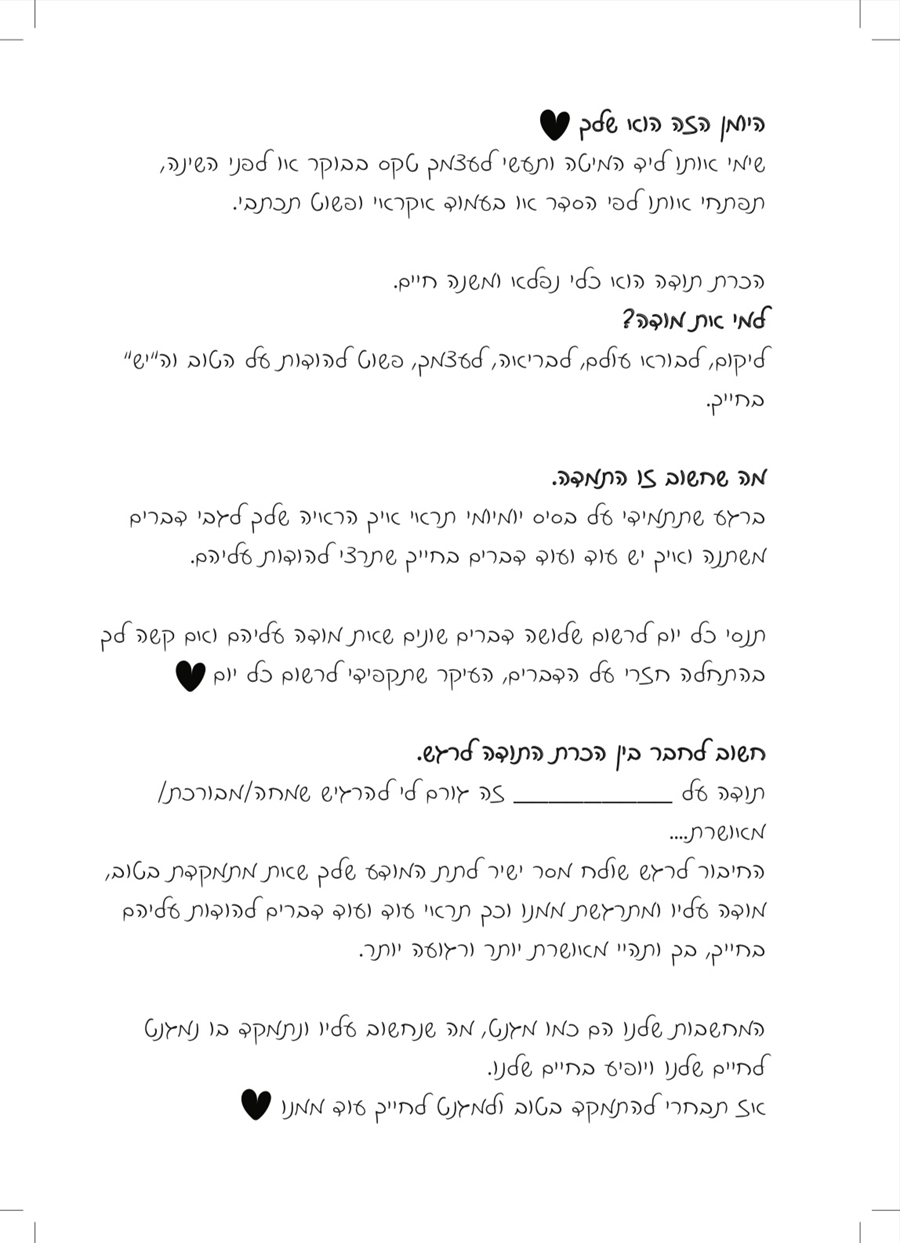 היומן הזה הוא שלך ♥
שימי אותו ליד המיטה ותעשי לעצמך טקס בבוקר או לפני השינה,
תפתחי אותו לפי הסדר או בעמוד אקראי ופשוט תכתבי.
הכרת תודה הוא כלי נפלא ומשנה חיים.
למי את מודה?
ליקום, לבורא עולם, לבריאה, לעצמך, פשוט להודות על הטוב וה"יש"
בחייך.
מה שחשוב זו התמדה.
ברגע שתתמידי על בסיס יומיומי תראי איך הראיה שלך לגבי דברים
משתנה ואיך יש עוד ועוד דברים בחייך שתרצי להודות עליהם.
תנסי כל יום לרשום שלושה דברים שונים שאת מודה עליהם ואם קשה לך
בהתחלה חזרי על הדברים, העיקר שתקפידי לרשום כל יום ♥
חשוב לחבר בין הכרת התודה לרגש.
תודה על ____________ זה גורם לי להרגיש שמחה/מבורכת/
מאושרת....
החיבור לרגש שולח מסר ישיר לתת המודע שלך שאת מתמקדת בטוב,
מודה עליו ומתרגשת ממנו וכך תראי עוד ועוד דברים להודות עליהם
בחייך, בך ותהיי מאושרת יותר ורגועה יותר.
המחשבות שלנו הם כמו מגנט, מה שנחשוב עליו ונתמקד בו נמגנט
לחיים שלנו ויופיע בחיים שלנו.
אז תבחרי להתמקד בטוב ולמגנט לחייך עוד ממנו ♥